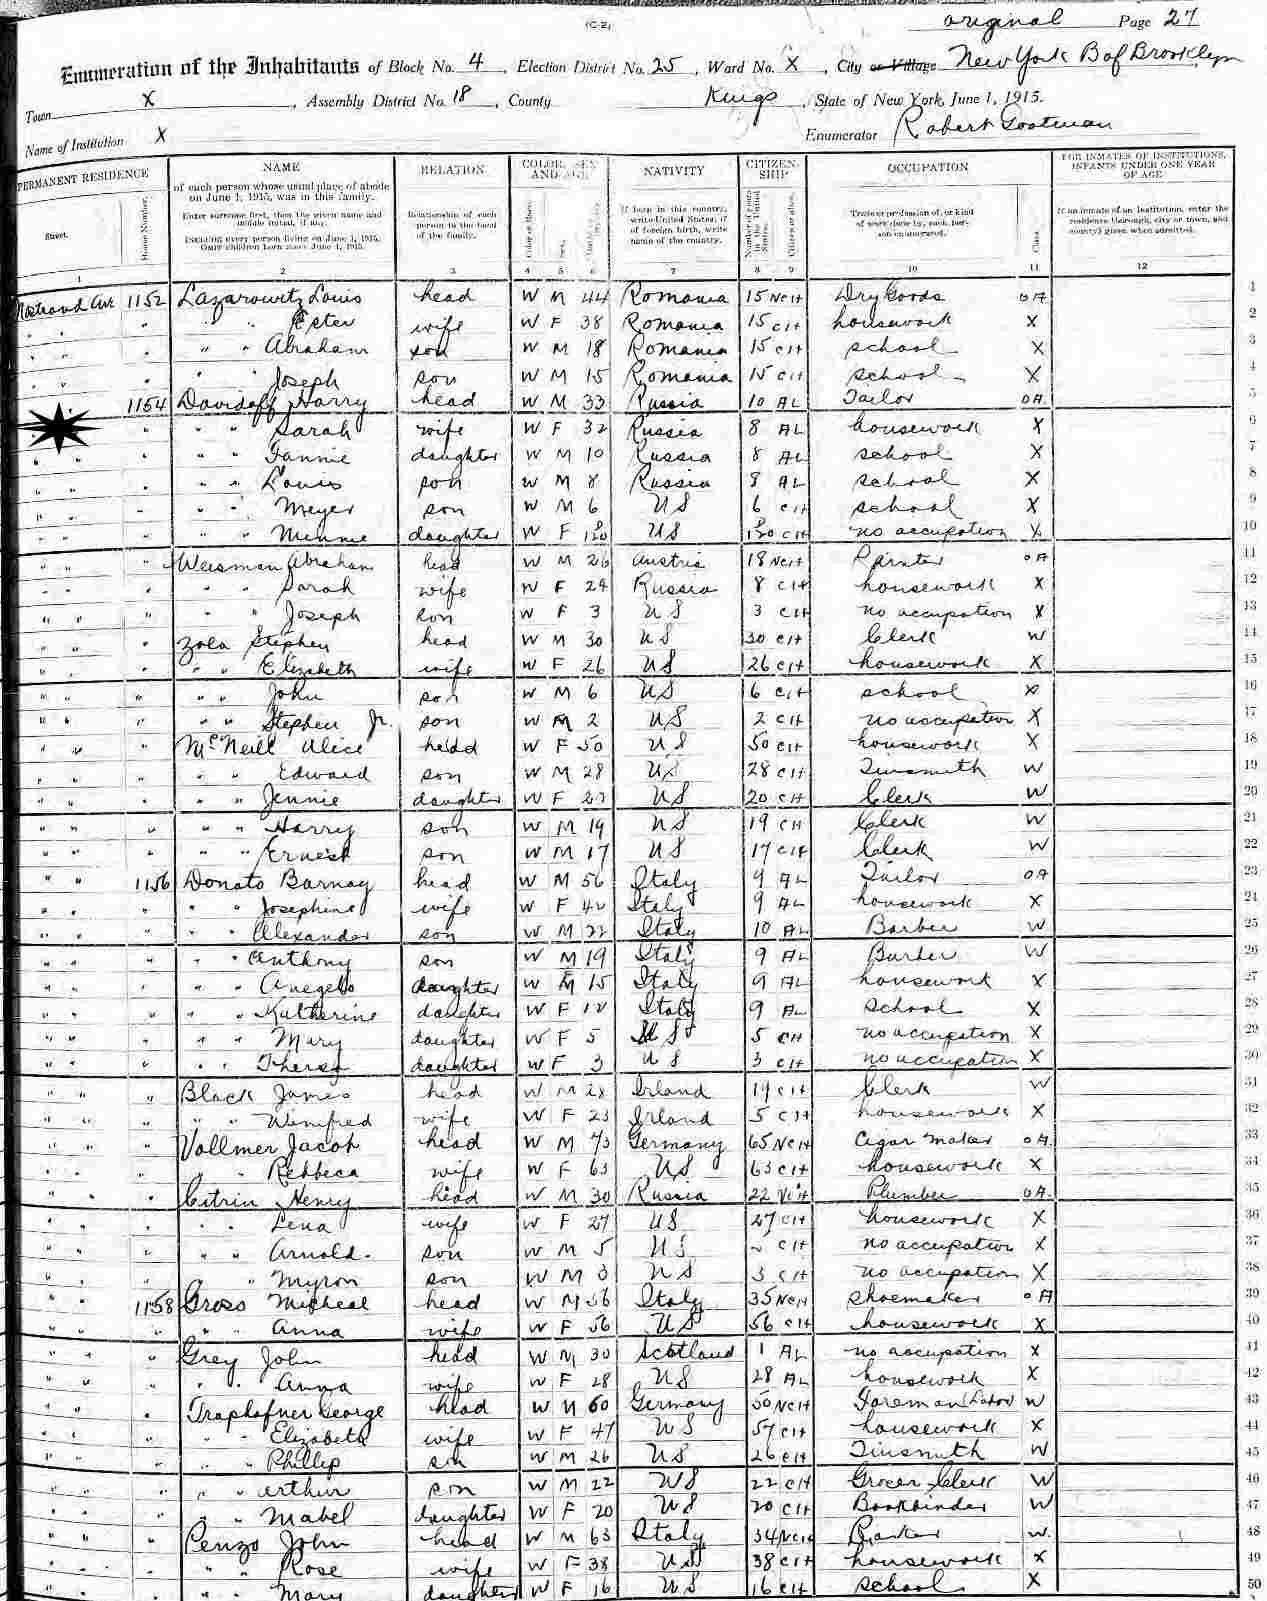 (C-2)
original Page 27
Enumeration of the Inhabitants of Block No. 4, Election District No. 25, Ward No. X, City or Village New York B of Brooklyn
Town X, Assembly District No. 18, County Kings, State of New York, June 1, 1915.
Name of Institution X Enumerator Robert Gootman
PERMANENT RESIDENCE NAME RELATION COLOR, SEX AND AGE NATIVITY CITIZENSHIP OCCUPATION FOR INMATES OF INSTITUTIONS, INFANTS UNDER ONE YEAR OF AGE
Street. House Number.
of each person whose usual place of abode on June 1, 1915, was in this family.
Enter surname first, then the given name and middle initial, if any.
INCLUDE every person living on June 1, 1915. OMIT children born since June 1, 1915.
Relationship of each person to the head of the family.
If born in this country, write United States; if of foreign birth, write name of the country.
Number of years in the United States. Citizen or alien.
Trade or profession of, or kind of work done by, each person enumerated. Class.
If an inmate of an institution, enter the residence thorough, city or town, and county) given when admitted.
1 2 3 4 5 6 7 8 9 10 11 12
Nostrand Ave 1152 Lazarowitz Louis head W M 44 Romania 15 NCH Dry Goods OA 1
" " " " " Ester wife W F 38 Romania 15 CIT housework X 2
" " " " " Abraham son W M 18 Romania 15 CIT school X 3
" " " " " Joseph son W M 15 Romania 15 CIT school X 4
1154 Davidoff Harry head W M 33 Russia 10 AL Tailor OA 5
" " Sarah wife W F 32 Russia 8 AL housework X 6
" " " " " Fannie daughter W M 10 Russia 8 AL school X 7
" " " " " Louis son W M 8 Russia 8 AL school X 8
" " " " " Meyer son W M 6 US 6 CIT school X 9
" " " " " Minnie daughter W F US CIT no occupation X 10
" " " Weisman Abraham head W M 26 Austria 18 NCH Painter OA 11
" " " " " Sarah wife W F 24 Russia 8 CIT housework X 12
" " " " " Joseph son W F 3 US 3 CIT no occupation X 13
" " " Zola Stephen head W M 30 US 30 CIT Clerk W 14
" " " " " Elizabeth wife W F 26 US 26 CIT housework X 15
" " " " " John son W M 6 US 6 CIT school X 16
" " " " " Stephen Jr. son W M 2 US 2 CIT no occupation X 17
" " " McNeill Alice head W F 50 US 50 CIT housework X 18
" " " " " Edward son W M 28 US 28 CIT Tinsmith W 19
" " " " " Jennie daughter W F US 20 CIT Clerk W 20
" " " " " Harry son W M 19 US 19 CIT Clerk W 21
" " " " " Ernest son W M 17 US 17 CIT Clerk W 22
" " 1156 Donato Barnay head W M 56 Italy 9 AL Tailor OA 23
" " " " " Josephine wife W F 40 Italy 9 AL housework X 24
" " " " " Alexander son W M 22 Italy 10 AL Barber W 25
" " " " " Anthony son W M 19 Italy 9 AL Barber W 26
" " " " " daughter W 15 Italy 9 AL housework X 27
" " " " " Katherine daughter W F Italy 9 AL school X 28
" " " " " Mary daughter W F 5 US 5 CIT no occupation X 29
" " " " " Theresa daughter W F 3 US 3 CIT no occupation X 30
" " " Black James head W M 28 Irland 19 CIT Clerk W 31
" " " " " Winifred wife W F 23 Irland 5 CIT housework X 32
" " " Vollmer Jacob head W M 73 Germany 65 NCH Cigar maker OA 33
" " " " " Rebbeca wife W F 63 US 63 CIT housework X 34
" " " Citrin Henry head W M 30 Russia 22 NCH Plumber OA 35
" " " " " Lena wife W F 27 US 27 CIT housework X 36
" " " " " Arnold son W M 5 US CIT no occupation X 37
" " " " Myron son W M 3 US 3 CIT no occupation X 38
" " 1158 Gross Micheal head W M 56 Italy 35 NCH shoemaker OA 39
" " " " " Anna wife W F 56 US 56 CIT housework X 40
" " " Grey John head W M 30 Scotland 1 AL no occupation X 41
" " " " " Anna wife W F 28 US 28 AL housework X 42
" " " Traphafner George head W M 60 Germany 50 NCH Foreman Labor W 43
" " " " " Elizabeth wife W F 47 US 57 CIT housework X 44
" " " " " Phillip son W M 26 US 26 CIT Tinsmith W 45
" " " " " Arthur son W M 22 US 22 CIT Grocer Clerk W 46
" " " " " Mabel daughter W F 20 US 20 CIT Bookbinder W 47
" " " Penzo John head W M 63 Italy 34 NCH W 48
" " " " " Rose wife W F 38 US 38 CIT housework X 49
" " " " " Mary daughter W F 16 US 16 CIT school X 50